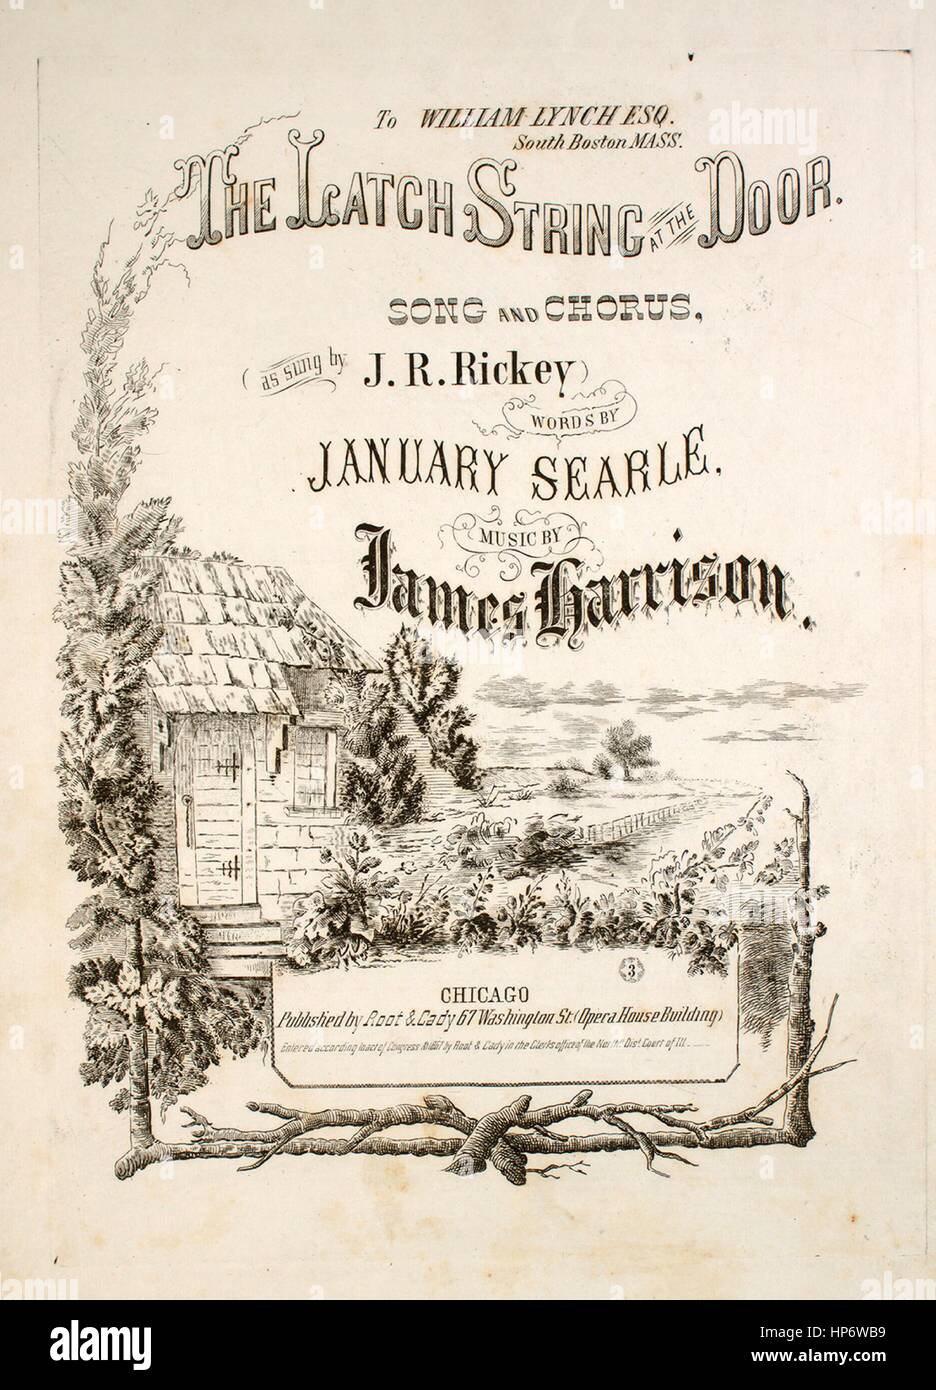 To WILLIAM LYNCH ESQ.
South Boston MASS.
THE LATCH STRING AT THE DOOR.
SONG AND CHORUS,
(as sung by J. R. Rickey)
WORDS BY
JANUARY SEARLE,
MUSIC BY
James Harrison.
3
CHICAGO
Published by Root & Cady 67 Washington St. (Opera House Building)
Entered according to act of Congress by Root & Cady in the Clerks office of the North Dist. Court of Ill.
alamy stock photo
HP6WB9
www.alamy.com